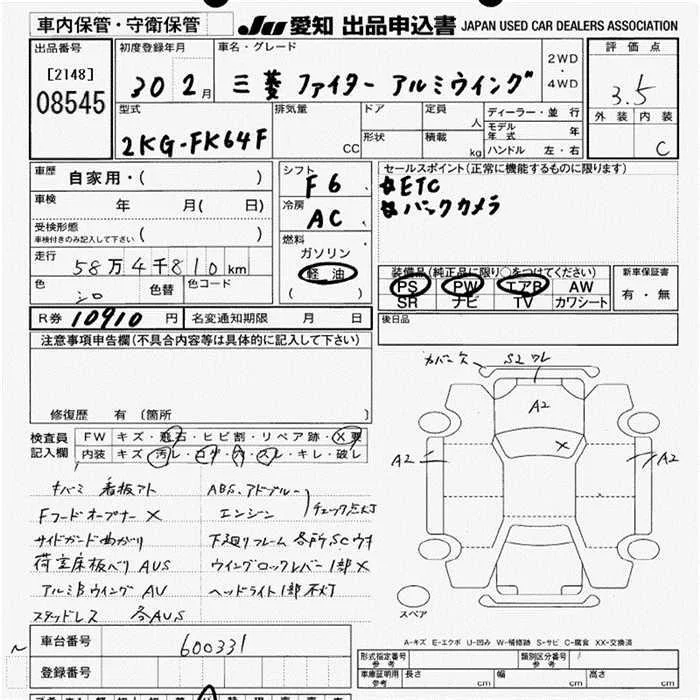 車内保管・守衛保管
JU 愛知 出品申込書 JAPAN USED CAR DEALERS ASSOCIATION
出品番号
[2148]
08545
初度登録年月
30 2月
車名・グレード
三菱 ファイター アルミウイング
2WD
・
4WD
評価点
3.5
外装 内装
C
型式
2KG-FK64F
排気量
CC
ドア
形状
定員
人
積載
kg
ディーラー・並行
モデル年式 年
ハンドル 左・右
車歴
自家用・( )
車検
年 月( 日)
受検形態
車検付きのみ記入して下さい ( )
走行
58万4千810km
色
シロ
色替
色コード
シフト
F6
冷房
AC
燃料
ガソリン
軽油
( )
セールスポイント(正常に機能するものに限ります)
ETC
バックカメラ
装備品(純正品に限り○をつけてください)
PS PW エアB AW
SR ナビ TV カワシート
新車保証書
有・無
R券 10910 円
名変通知期限 月 日
後日品
注意事項申告欄(不具合内容等は具体的に記入して下さい)
修復歴 有 〔箇所 〕
検査員
記入欄
FW キズ・飛石・ヒビ割・リペア跡・X要
内装 キズ・汚レ・コゲ・穴・スレ・キレ・破レ
キバミ 看板アト
Fフードオープナー X
サイドガード曲がり
荷室床板ベリ AUS
アルミBウイング AU
スタッドレス 各AUS
ABS、アドブルー
エンジン
チェック点灯
下廻リフレーム 各所SCウキ
ウイングロックレバー1部X
ヘッドライト1部不灯
カバー欠
S2ワレ
A2
X
A2
A2
スペア
A-キズ E-エクボ U-凹み W-補修跡 S-サビ C-腐食 XX-交換済
車台番号
600331
登録番号
形式指定番号
参考
類別区分番号
参考
車庫証明用
参考
長さ cm
幅 cm
高さ cm